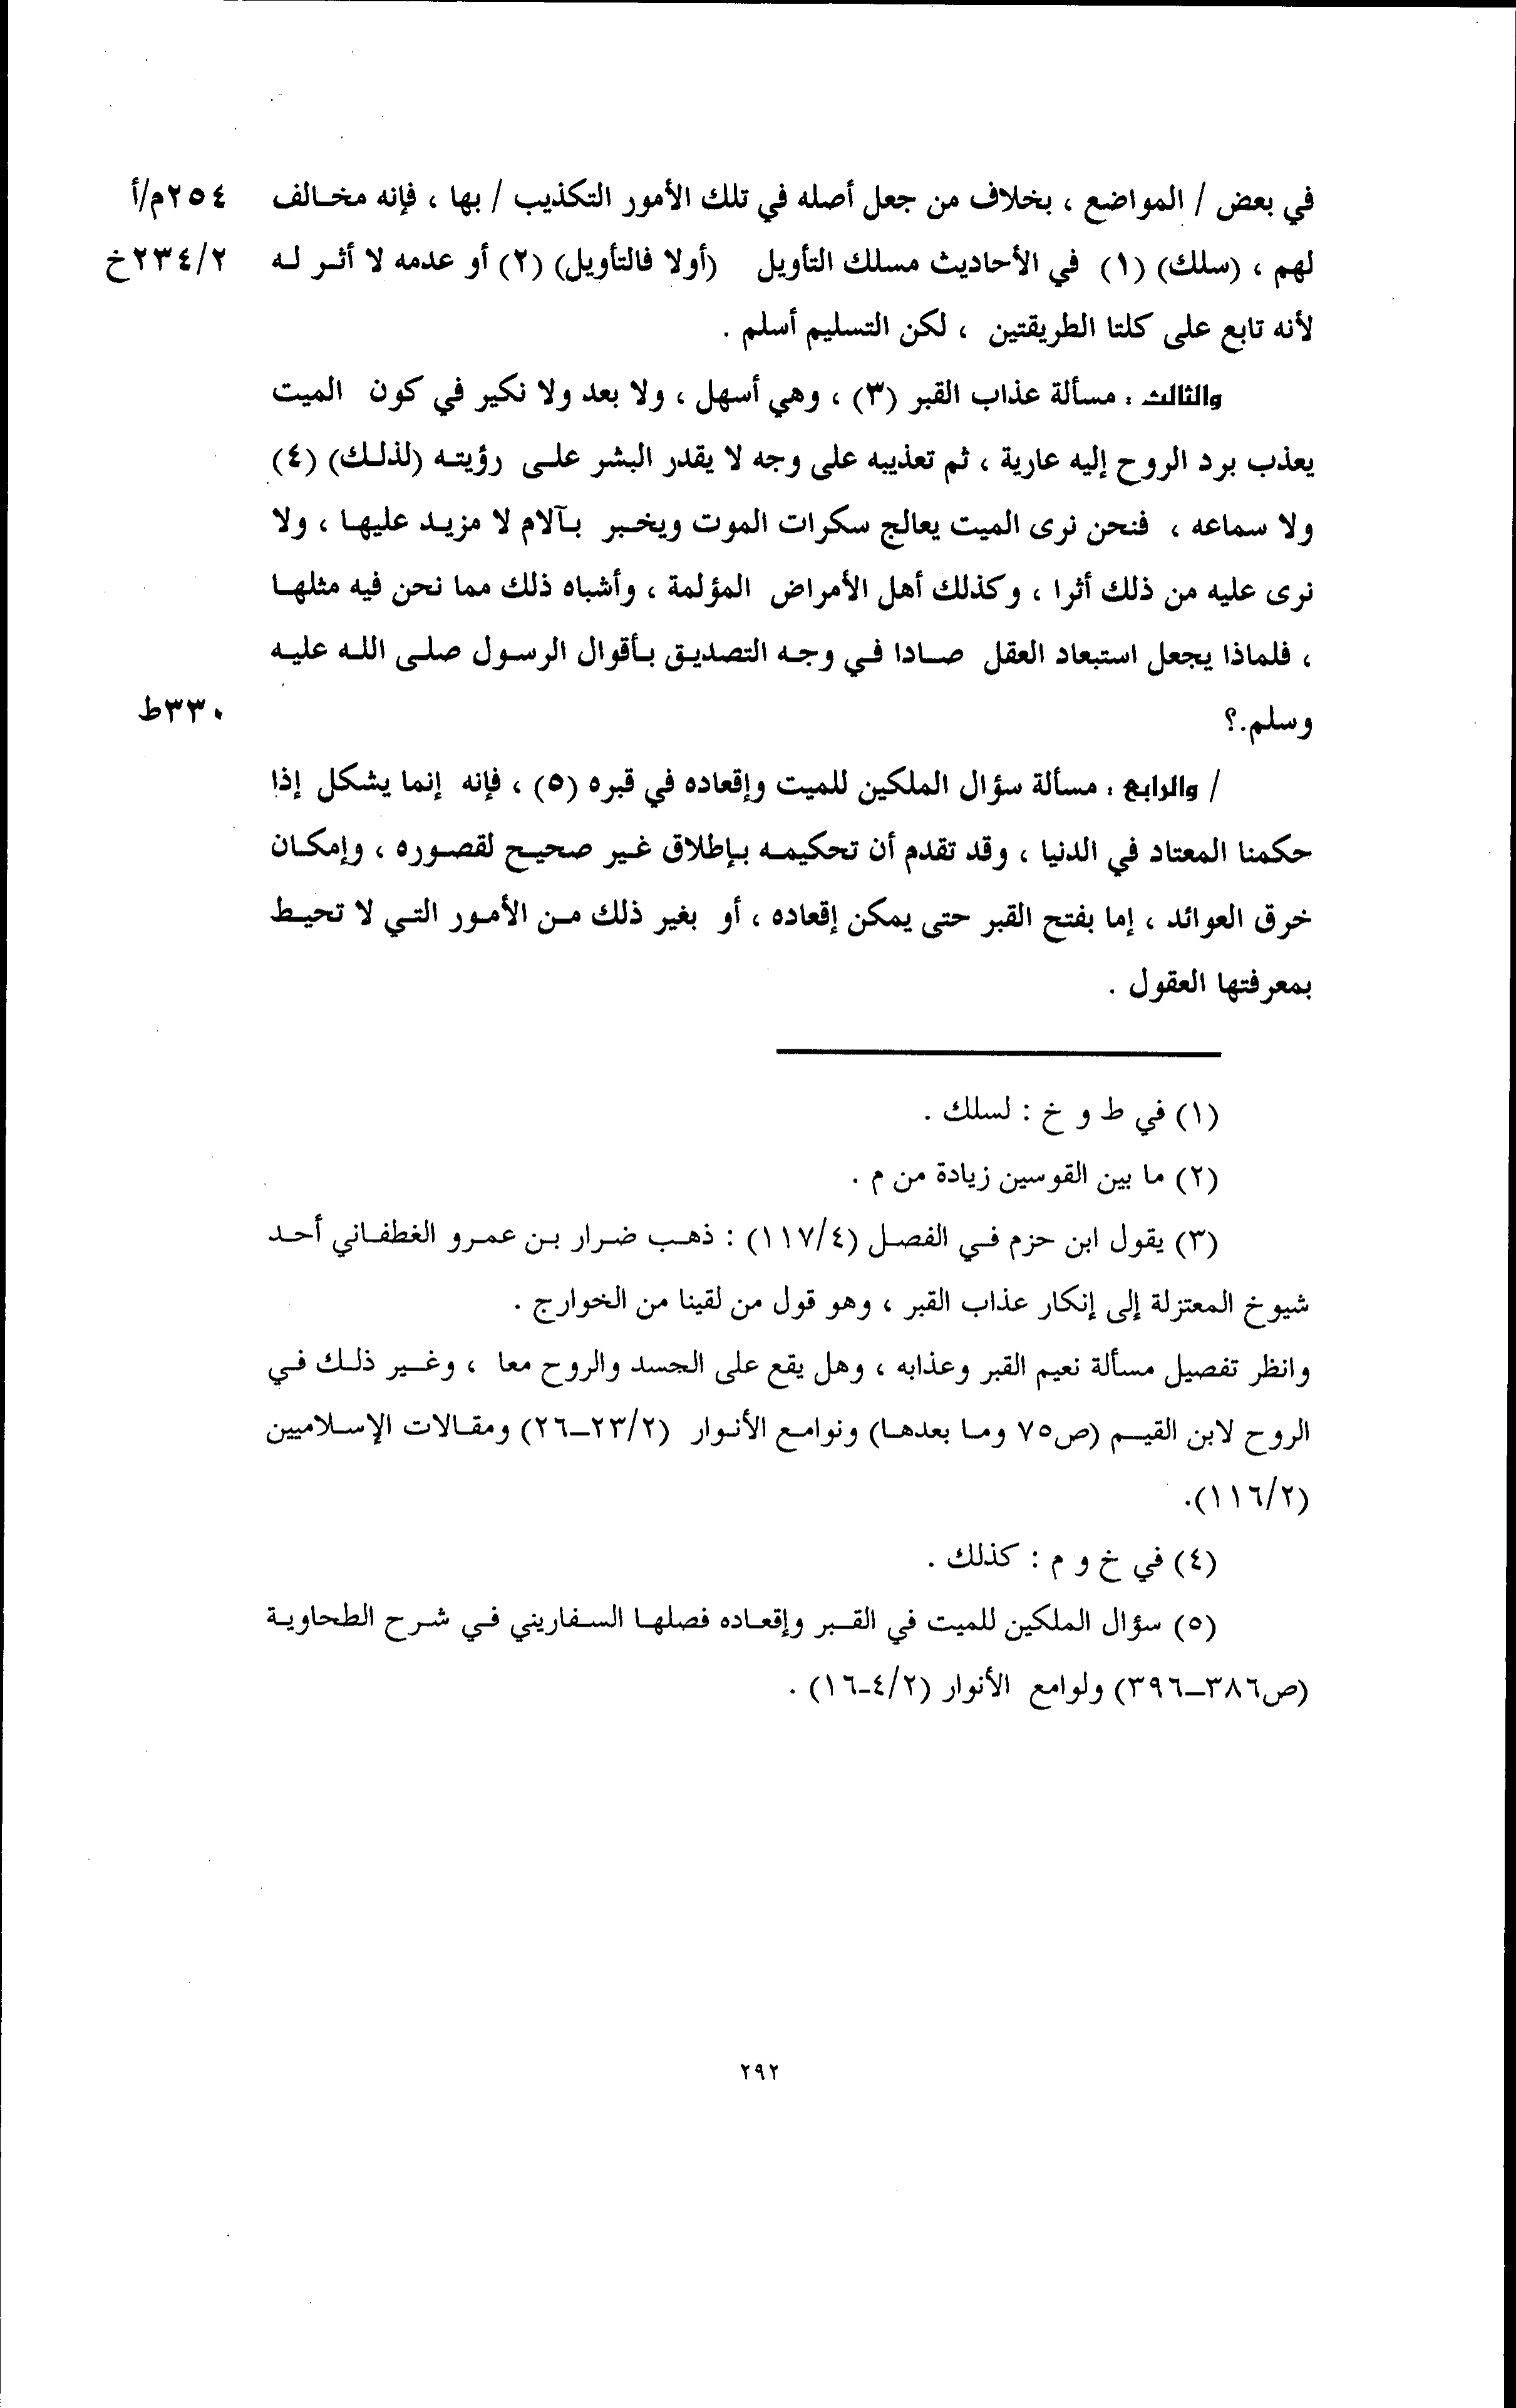 في بعض / المواضع ، بخلاف من جعل أصله في تلك الأمور التكذيب / بها ، فإنه مخالف ٢٥٤م/أ
لهم ، (سلك) (١) في الأحاديث مسلك التأويل (أولا فالتأويل) (٢) أو عدمه لا أثر له ٢٣٤/٢خ
لأنه تابع على كلتا الطريقتين ، لكن التسليم أسلم .
والثالث : مسألة عذاب القبر (٣) ، وهي أسهل ، ولا بعد ولا نكير في كون الميت
يعذب برد الروح إليه عارية ، ثم تعذيبه على وجه لا يقدر البشر على رؤيته (لذلك) (٤)
ولا سماعه ، فنحن نرى الميت يعالج سكرات الموت ويخبر بآلام لا مزيد عليها ، ولا
نرى عليه من ذلك أثرا ، وكذلك أهل الأمراض المؤلمة ، وأشباه ذلك مما نحن فيه مثلها
، فلماذا يجعل استبعاد العقل صادا في وجه التصديق بأقوال الرسول صلى الله عليه
وسلم.؟ ٣٣٠ط
/ والرابع : مسألة سؤال الملكين للميت وإقعاده في قبره (٥) ، فإنه إنما يشكل إذا
حكمنا المعتاد في الدنيا ، وقد تقدم أن تحكيمه بإطلاق غير صحيح لقصوره ، وإمكان
خرق العوائد ، إما بفتح القبر حتى يمكن إقعاده ، أو بغير ذلك من الأمور التي لا تحيط
بمعرفتها العقول .
(١) في ط و خ : لسلك .
(٢) ما بين القوسين زيادة من م .
(٣) يقول ابن حزم في الفصل (١١٧/٤) : ذهب ضرار بن عمرو الغطفاني أحد
شيوخ المعتزلة إلى إنكار عذاب القبر ، وهو قول من لقينا من الخوارج .
وانظر تفصيل مسألة نعيم القبر وعذابه ، وهل يقع على الجسد والروح معا ، وغير ذلك في
الروح لابن القيم (ص٧٥ وما بعدها) ونوامع الأنوار (٢٣/٢-٢٦) ومقالات الإسلاميين
(١١٦/٢).
(٤) في خ و م : كذلك .
(٥) سؤال الملكين للميت في القبر وإقعاده فصلها السفاريني في شرح الطحاوية
(ص٣٨٦-٣٩٦) ولوامع الأنوار (٤/٢-١٦) .
٢٩٢